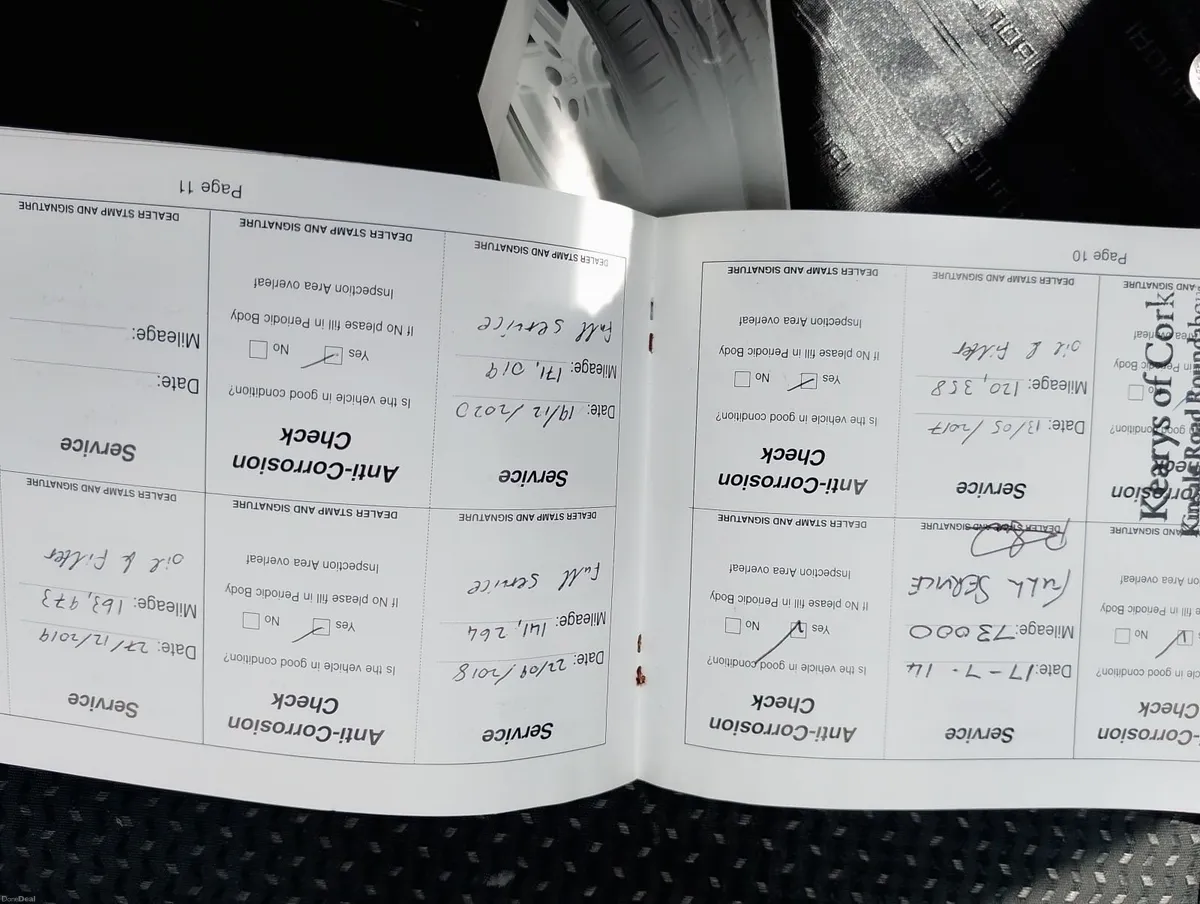 Service
Date: 17-7-14
Mileage: 73000
FULL SERVICE
DEALER STAMP AND SIGNATURE
Anti-Corrosion
Check
Is the vehicle in good condition?
Yes No
If No please fill in Periodic Body
Inspection Area overleaf
DEALER STAMP AND SIGNATURE
Kearys of Cork
Service
Date: 13/05/2017
Mileage: 120,358
oil & Filter
DEALER STAMP AND SIGNATURE
Anti-Corrosion
Check
Is the vehicle in good condition?
Yes No
If No please fill in Periodic Body
Inspection Area overleaf
DEALER STAMP AND SIGNATURE
Page 10
Service
Date: 22/09/2018
Mileage: 141,264
Full service
DEALER STAMP AND SIGNATURE
Anti-Corrosion
Check
Is the vehicle in good condition?
Yes No
If No please fill in Periodic Body
Inspection Area overleaf
DEALER STAMP AND SIGNATURE
Service
Date: 27/12/2019
Mileage: 163,973
oil & Filter
DEALER STAMP AND SIGNATURE
Service
Date: 19/12/2020
Mileage: 171,019
Full service
DEALER STAMP AND SIGNATURE
Anti-Corrosion
Check
Is the vehicle in good condition?
Yes No
If No please fill in Periodic Body
Inspection Area overleaf
DEALER STAMP AND SIGNATURE
Service
Date:
Mileage:
DEALER STAMP AND SIGNATURE
Page 11
DoneDeal